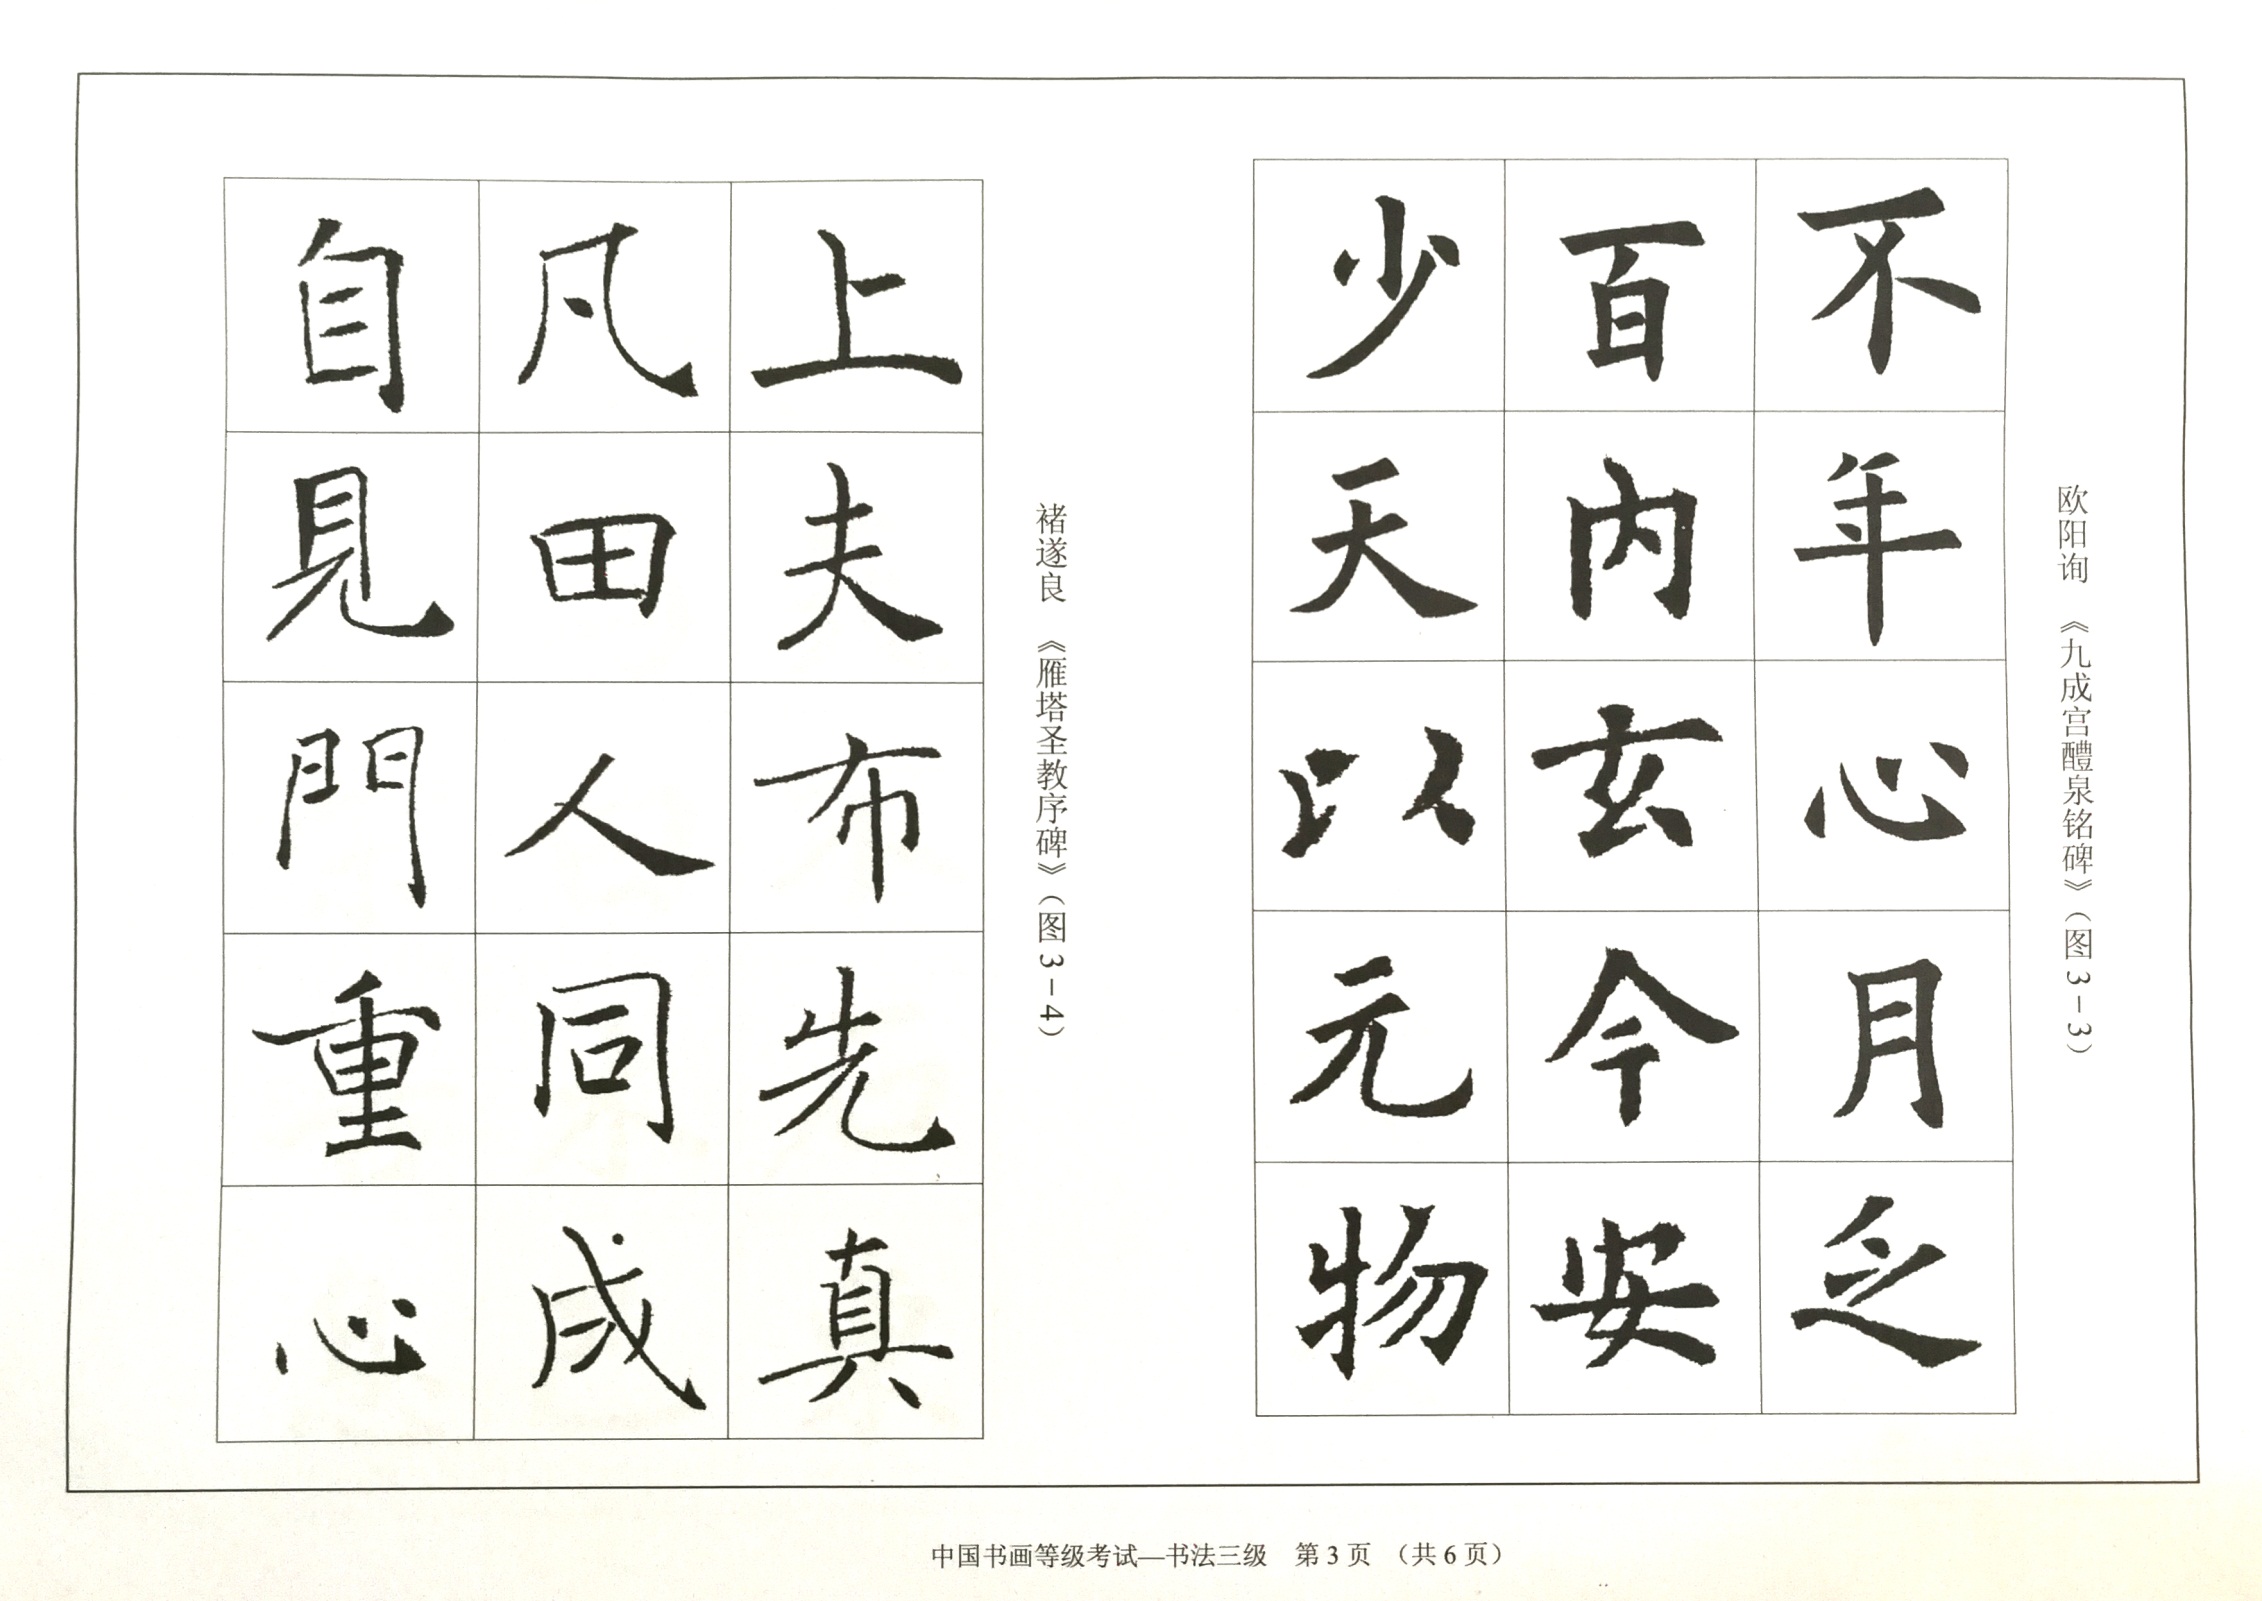 欧阳询 《九成宫醴泉铭碑》(图3-3)
不年心月乏
百内玄今安
少天以元物
褚遂良 《雁塔圣教序碑》(图3-4)
上夫布先真
凡田人同成
自見門重心
中国书画等级考试—书法三级 第3页 (共6页)